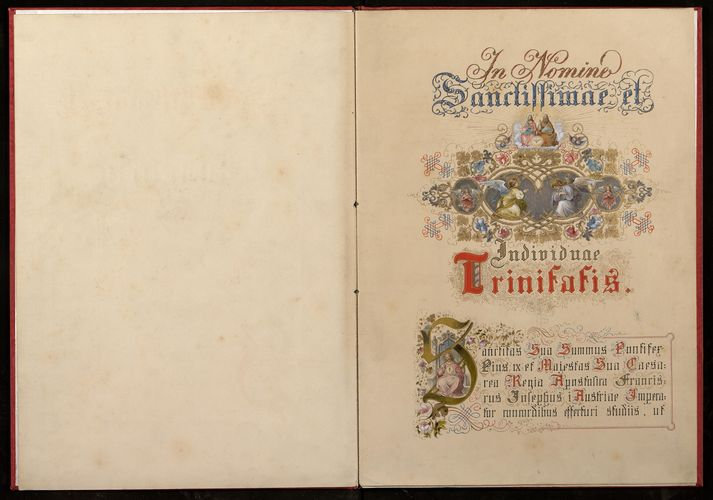 In Nomine
Sanctissimae et
Individuae
Trinitatis.
Sanctitas Sua Summus Pontifex
Pius ix et Majestas Sua Caesa:
rea Regia Apostolica Francis:
cus Josephus i Austriae Impera:
tor concordibus effecturi studiis, ut